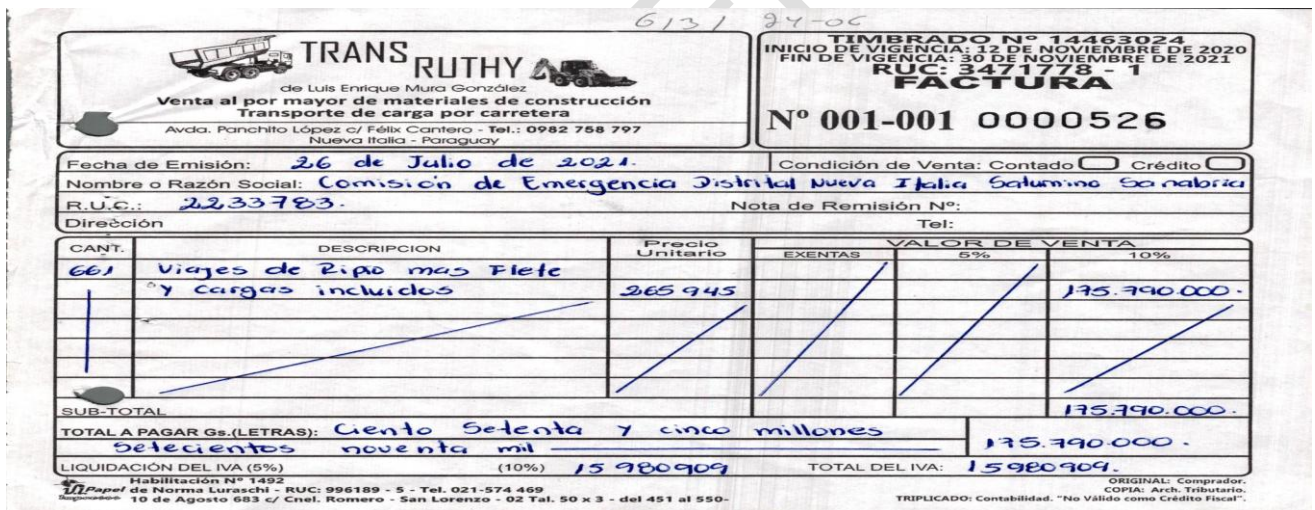 6131 24-06
TRANS
RUTHY
de Luis Enrique Mura González
Venta al por mayor de materiales de construcción
Transporte de carga por carretera
Avda. Panchito López c/ Félix Cantero - Tel.: 0982 758 797
Nueva Italia - Paraguay
TIMBRADO Nº 14463024
INICIO DE VIGENCIA: 12 DE NOVIEMBRE DE 2020
FIN DE VIGENCIA: 30 DE NOVIEMBRE DE 2021
RUC: 3471778 - 1
FACTURA
Nº 001-001 0000526
Fecha de Emisión: 26 de Julio de 2021. Condición de Venta: Contado Crédito
Nombre o Razón Social: Comisión de Emergencia Distrital Nueva Italia Saturnino Sanabria
R.U.C.: 2233783. Nota de Remisión Nº:
Dirección Tel:
CANT. DESCRIPCION Precio Unitario VALOR DE VENTA
EXENTAS 5% 10%
661 Viajes de Ripio mas Flete
y cargas incluidos 265 945 175.790.000.
SUB-TOTAL 175.790.000.
TOTAL A PAGAR Gs.(LETRAS): Ciento Setenta y cinco millones
Setecientos noventa mil 175.790.000.
LIQUIDACIÓN DEL IVA (5%) (10%) 15980909 TOTAL DEL IVA: 15980909.
Habilitación Nº 1492
Papel de Norma Luraschi - RUC: 996189 - 5 - Tel. 021-574 469
10 de Agosto 683 c/ Cnel. Romero - San Lorenzo - 02 Tal. 50 x 3 - del 451 al 550-
ORIGINAL: Comprador.
COPIA: Arch. Tributario.
TRIPLICADO: Contabilidad. "No Válido como Crédito Fiscal".